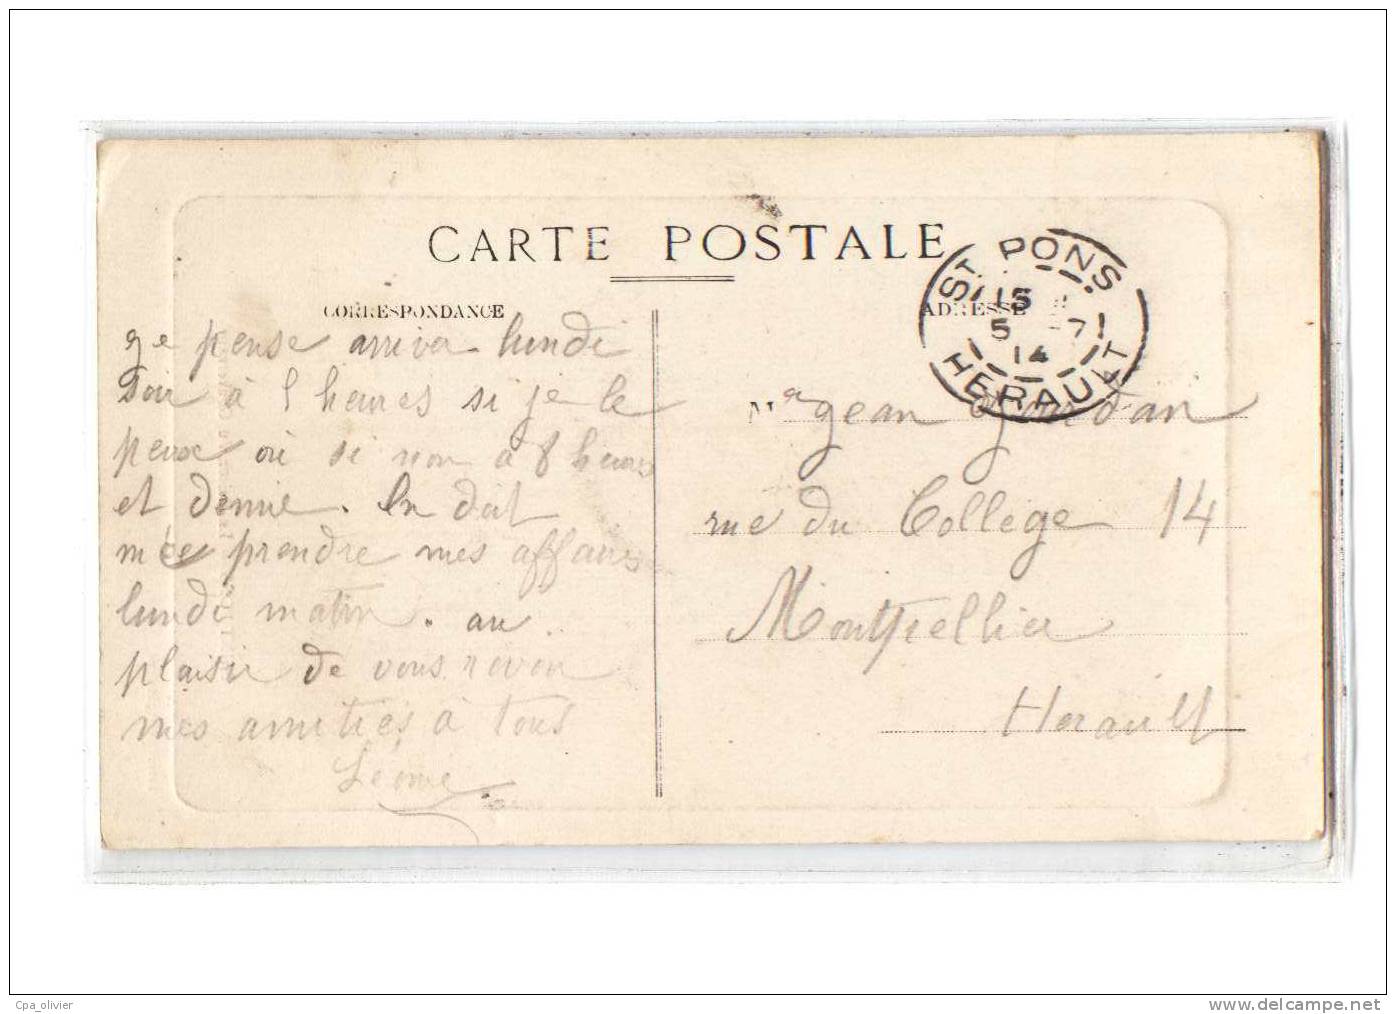 CARTE POSTALE
CORRESPONDANCE
ge pense arriver lundi
soir à 5 heures si je le
peux ou si non à 8 heures
et demie. On doit
mée prendre mes affaires
lundi matin. au
plaisir de vous revoir
mes amitiés à tous
Léonie
ST PONS
15
5 -7
14
HERAULT
ADRESSE
M r gean Jourdan
rue du College 14
Montpellier
Herault
Cpa_olivier
www.delcampe.net